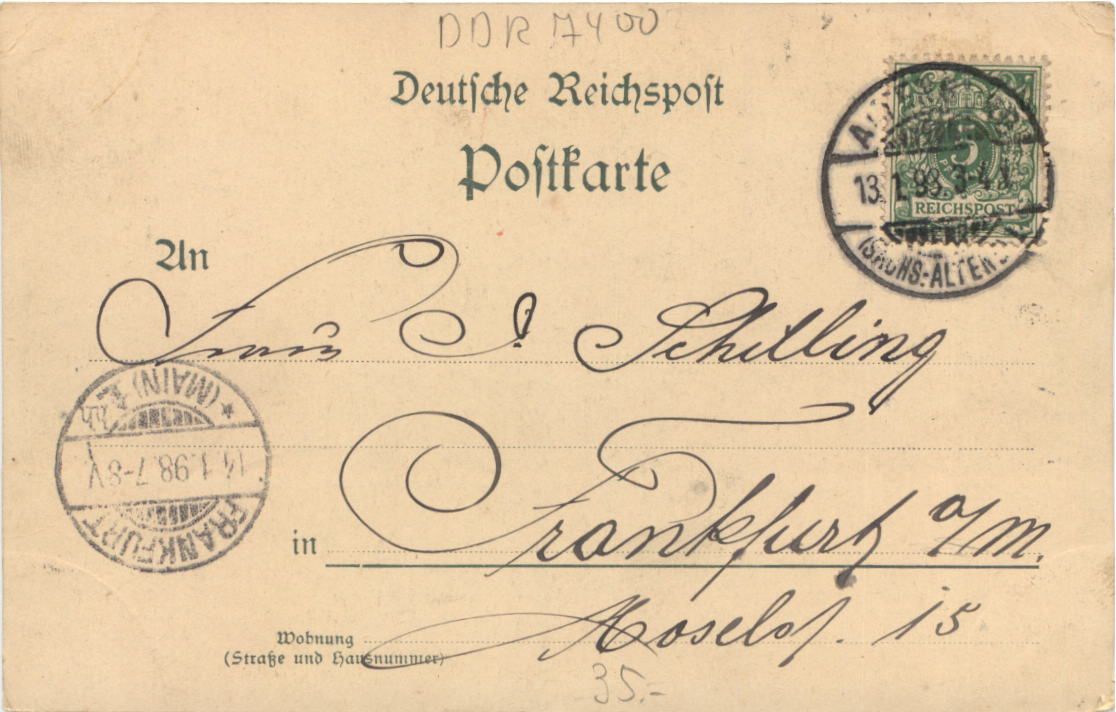 DDR 7400
Deutsche Reichspost
Postkarte
5
REICHSPOST
13.1.98.3-4
(SACHS.-ALTENB
An
Schilling
(MAIN)
14.1.98.7-8V.
FRANKFURT
in Frankfurt a/m.
Wohnung
(Straße und Hausnummer)
15
35.-